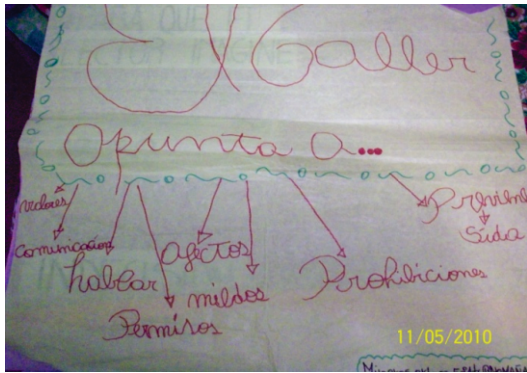 El Taller
apunta a...
valores
comunicación
hablar
Permisos
afectos
mildos
Prohibiciones
Previene
Sida
11/05/2010